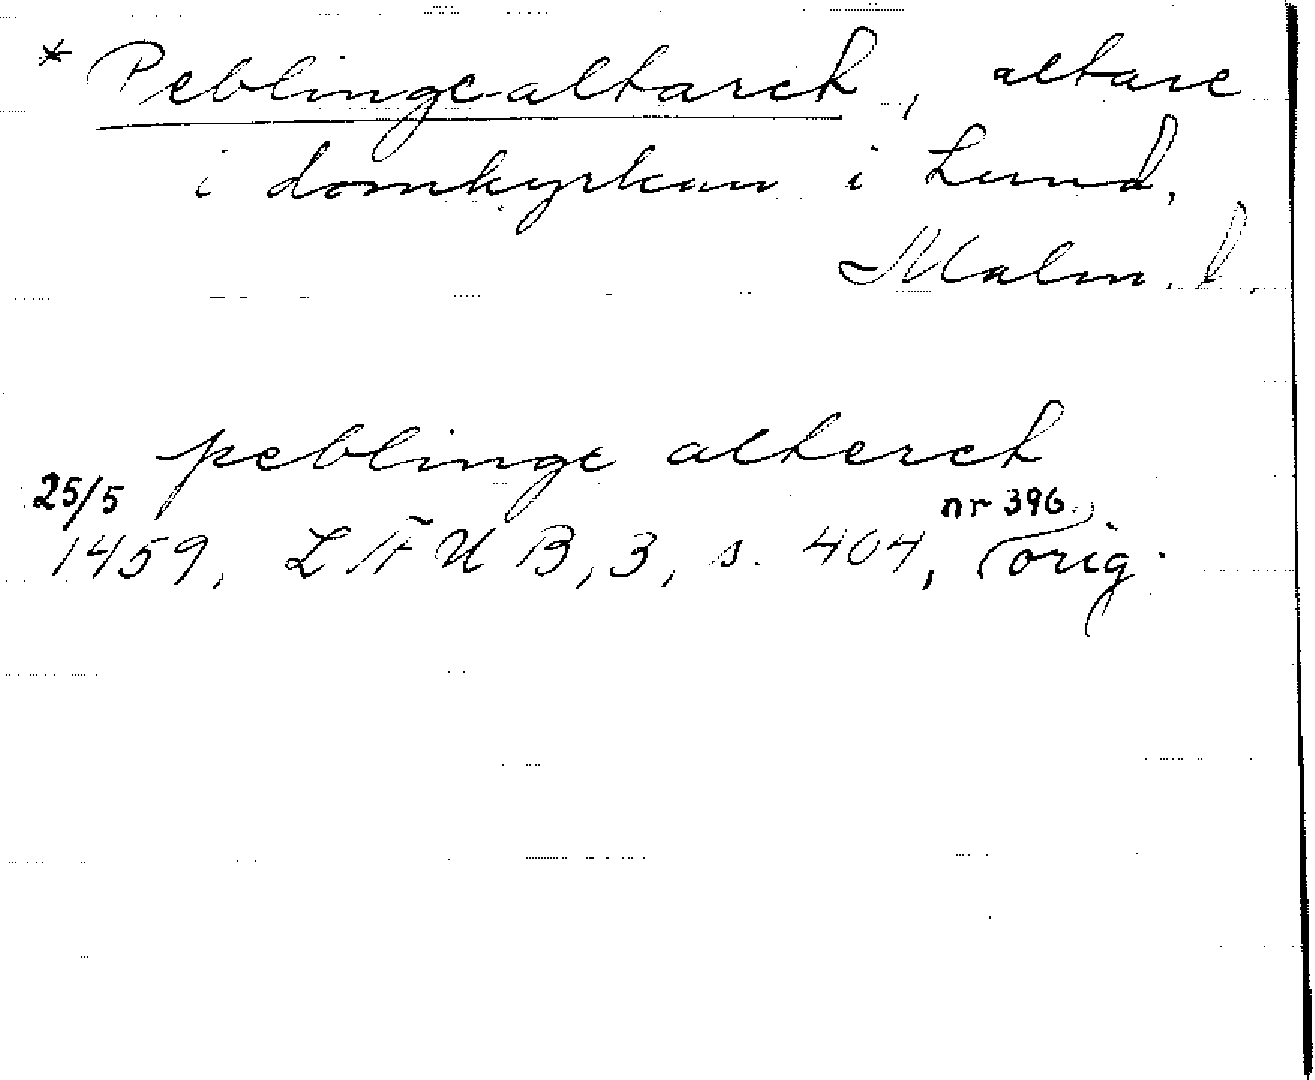 * Peblingealtaret, altare
i domkyrkan i Lund.
Malm. l.
peblinge alteret
25/5 nr 396
1459, LÄUB, 3, s. 404, orig.